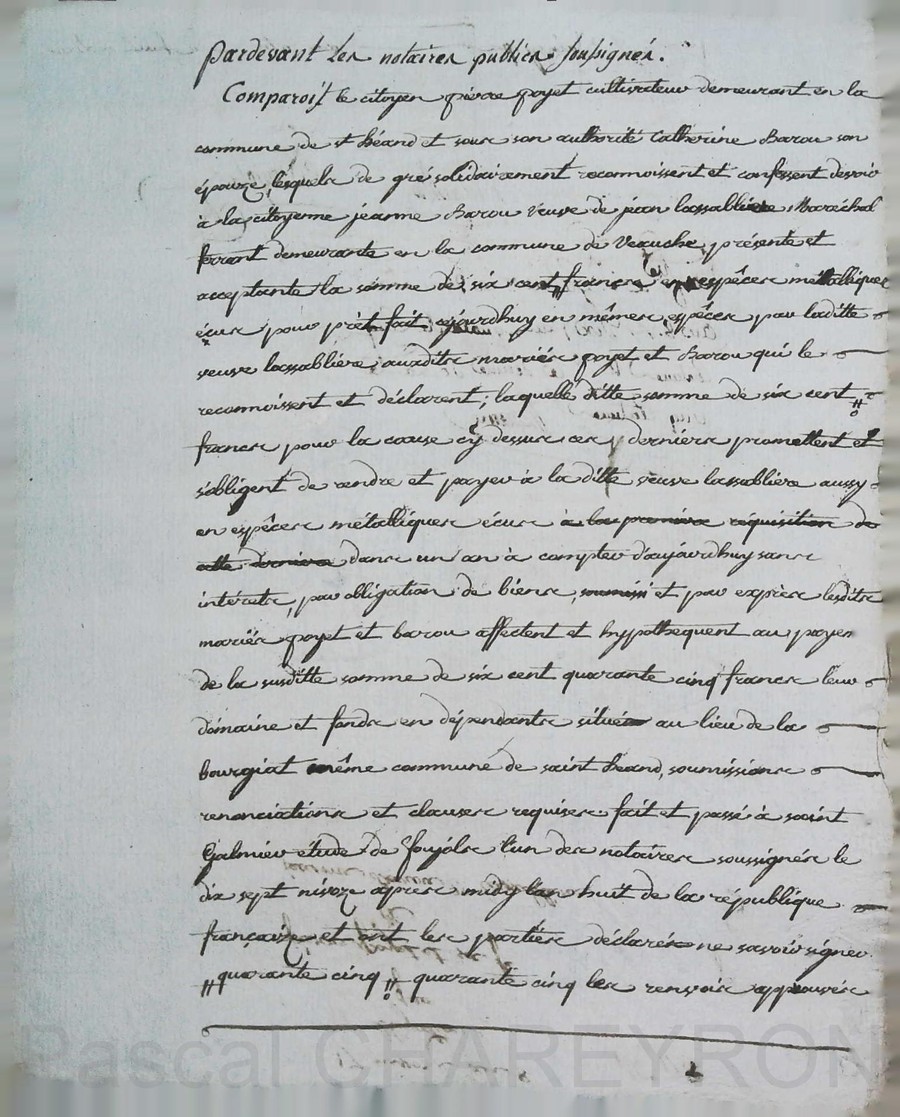 Pardevant les notaires publics soussignés.
Comparoit le citoyen pierre poyet cultivateur demeurant en la
commune de st héand et sous son authorité Catherine Barou son
épouze, lesquels de gré solidairement reconnoissent et confessent devoir
à la citoyenne jeanne Barou veuve de jean lassabliere Maréchal
ferrant demeurante en la commune de Veauche, présente et
acceptante la somme de six cent " francs en espêces métalliques
écus pour prèt fait cejourdhuy en mêmes espêces par laditte
veuve lassabliere, auxdits mariés poyet et Barou qui le
reconnoissent et déclarent; laquelle ditte somme de six cent "
francs pour la cause cy dessus ces derniers promettent et
s'obligent de rendre et payer à la ditte veuve lassabliere aussy
en espêces métalliques écus à la première réquisition de
cette derniere dans un an à compter d'aujourdhuy sans
intérèts, par obligation de biens, et par exprès lesdits
mariés poyet et barou affectent et hypothèquent au payem
de la susditte somme de six cent quarante cinq francs leur
domaine et fonds en dépendants situés au lieu de la
bourgiat même commune de saint héand, soumissions
renonciations et clauses requises fait et passé à saint
Galmier étude de foujols l'un des notaires soussignés le
dix sept nivoze après midy l'an huit de la république
françaize et ont les parties déclarés ne savoir signer.
" quarante cinq " quarante cinq les renvois approuvés
Pascal CHAREYRON